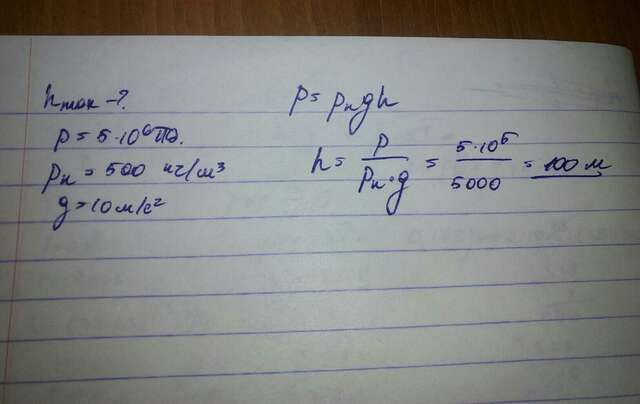 hmax -?
p = 5·10⁶ Па.
ρк = 500 кг/м³
g = 10 м/с²
p = ρкgh
h = p / ρк·g = 5·10⁵ / 5000 = 100 м